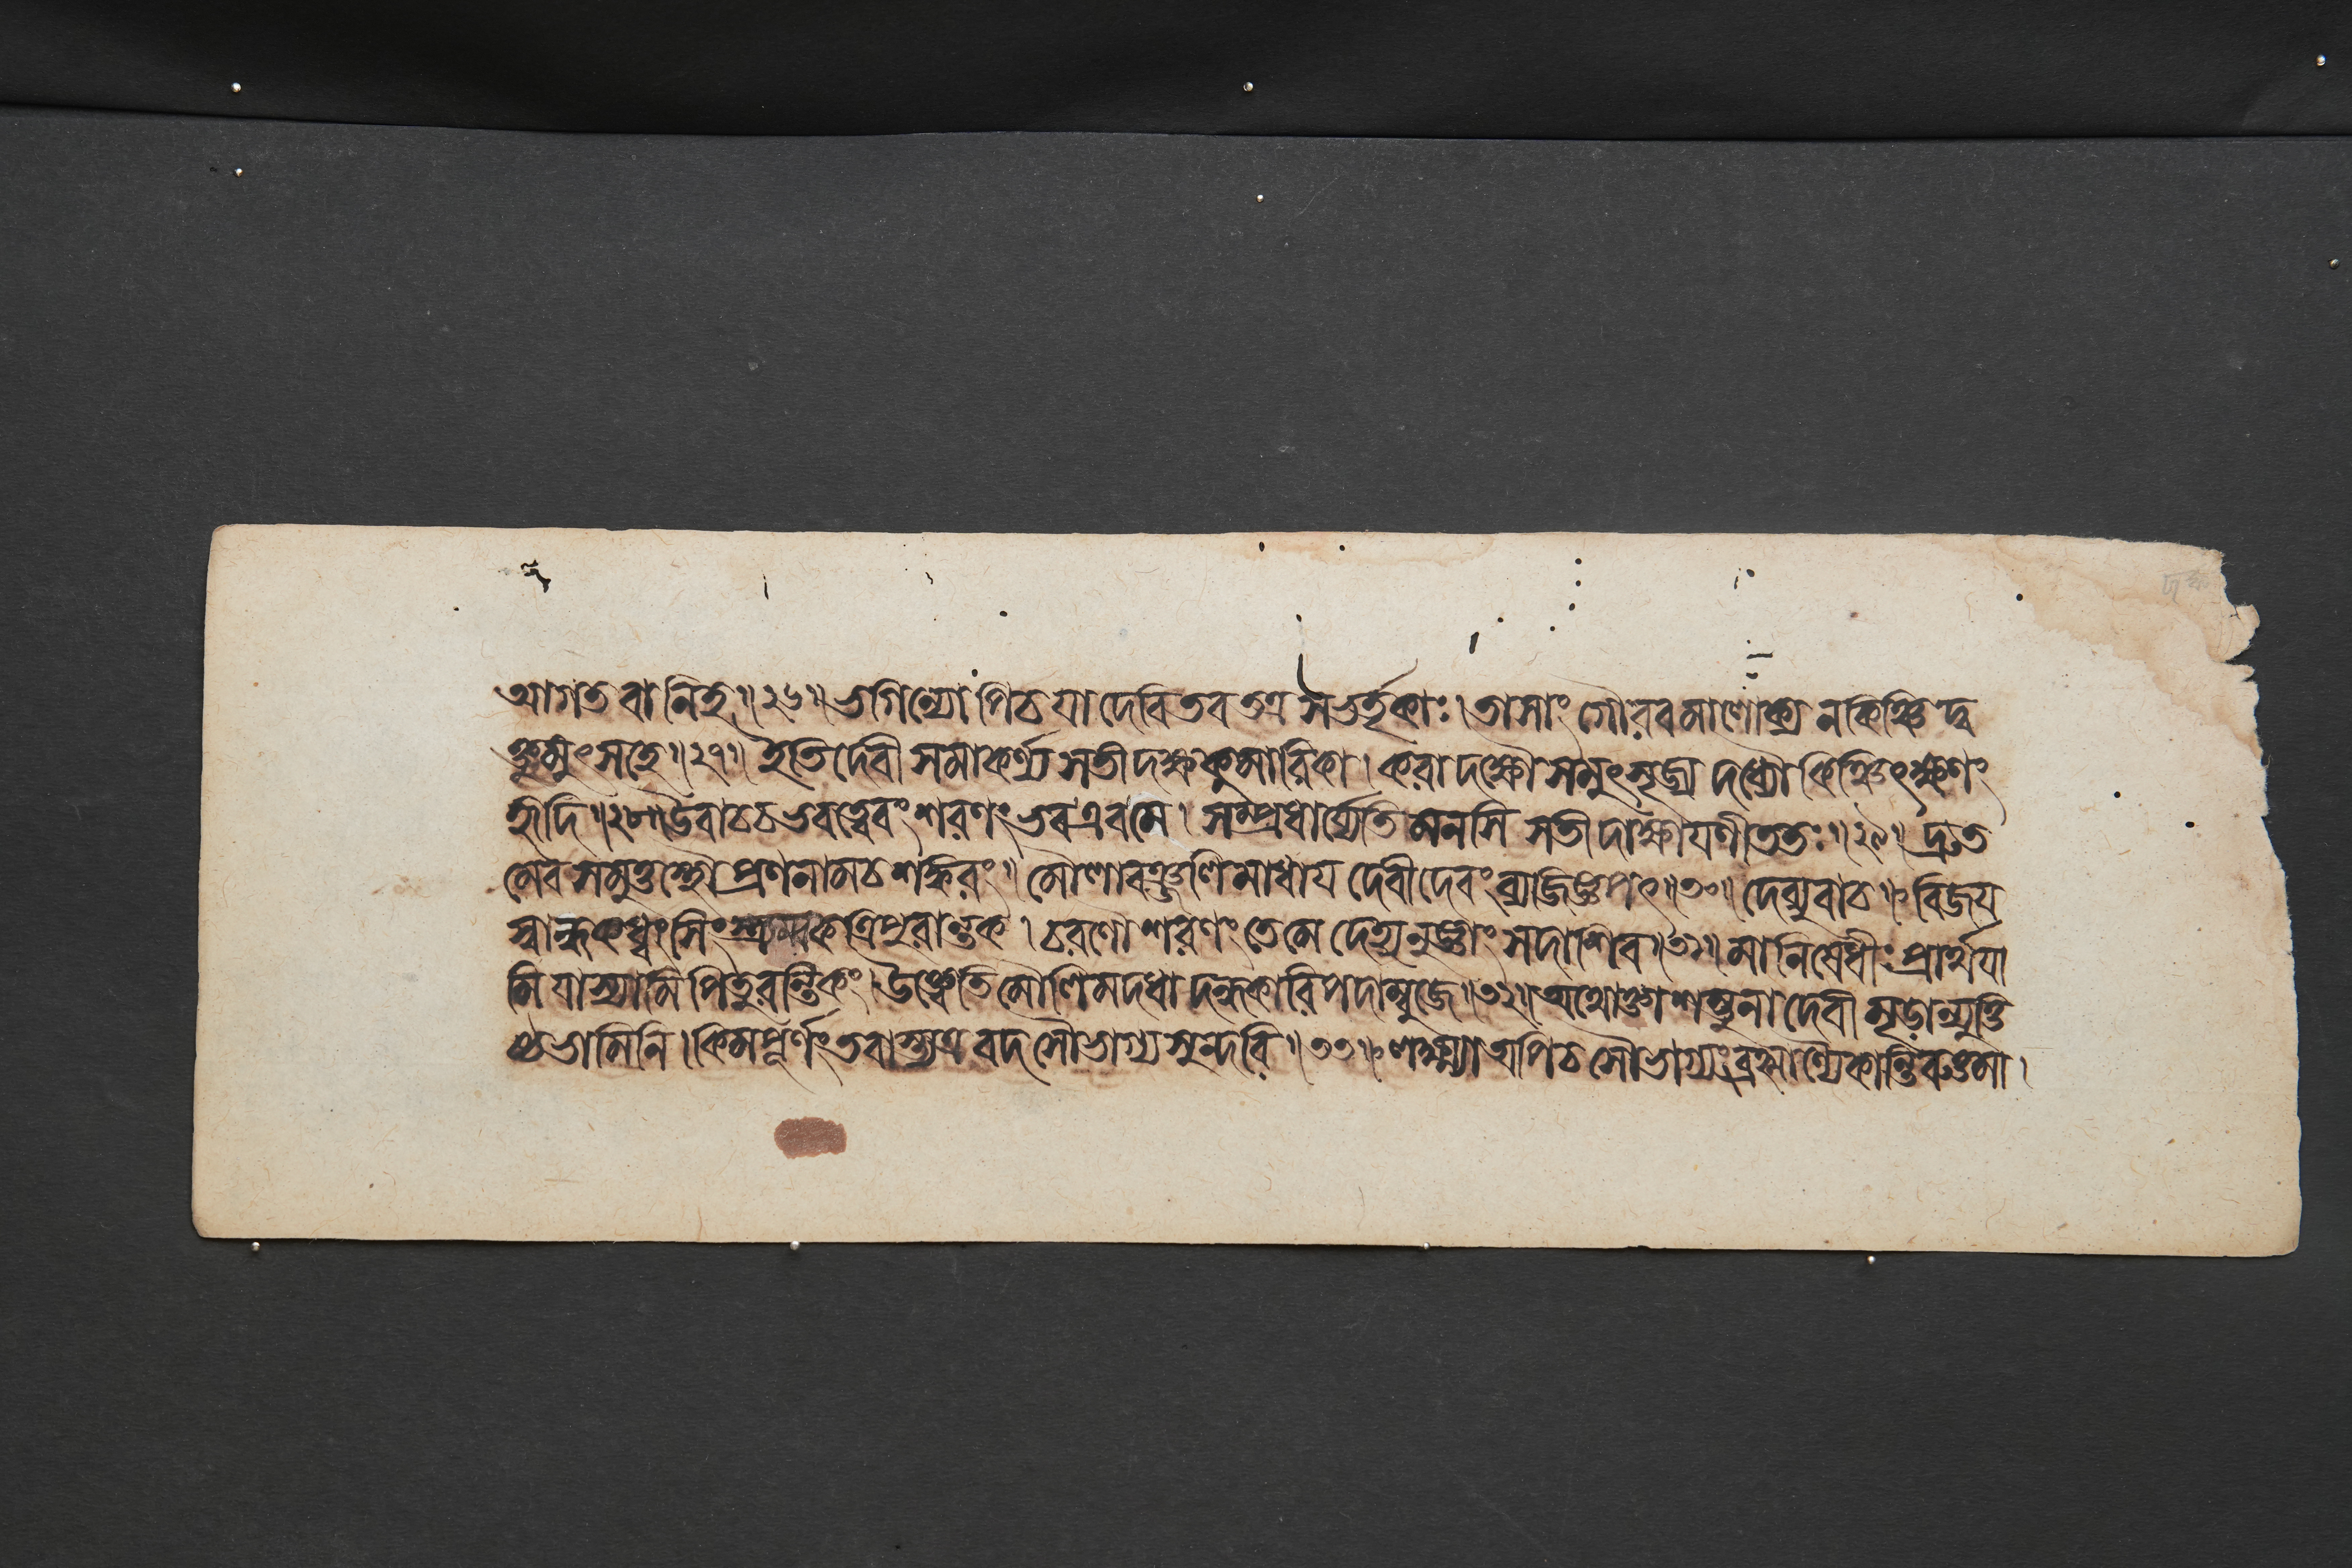 আগতবানিহ॥২৬॥ ভগিন্যোপিচ যা দেবি তব তত্র সভর্তৃকাঃ। তাসাং গৌরবমালোক্য ন কিঞ্চিদ্ব
ক্তুমুৎসহে॥২৭॥ ইতি দেবী সমাকর্ণ্য সতী দক্ষকুমারিকা। করাদক্ষৌ সমুৎসৃজ্য দধ্যৌ কিঞ্চিৎক্ষণং
হৃদি॥২৮॥ উবাচচ ভবত্বেবং শরণং ভব এব মে। সম্প্রধার্য্যেতি মনসি সতী দাক্ষাযণী ততঃ॥২৯॥ দ্রুত
মেব সমুত্তস্থৌ প্রণনামচ শঙ্করং। মৌলাবঞ্জলিমাধায দেবী দেবং ব্যজিজ্ঞপৎ॥৩০॥ দেব্যুবাচ॥ বিজয
স্বান্ধকধ্বংসিং স্ত্র্যম্বক ত্রিপুরান্তক। চরণৌ শরণং তে মে দেহ্যনুজ্ঞাং সদাশিব॥৩১॥ মা নিষেধীঃ প্রার্থযা
মি যাস্যামি পিতুরন্তিকং। উক্ত্বেতি মৌলিমদধাদন্ধকারিপদাম্বুজে॥৩২॥ অথোক্তা শম্ভুনা দেবী মৃড়ান্যুত্তি
ষ্ঠ ভামিনি। কিমপূর্ণং তবাস্ত্যত্র বদ সৌভাগ্যসুন্দরি॥৩৩॥ লক্ষ্ম্যা অপিচ সৌভাগ্যং ব্রহ্মাণ্যৈ কান্তিরুত্তমা।